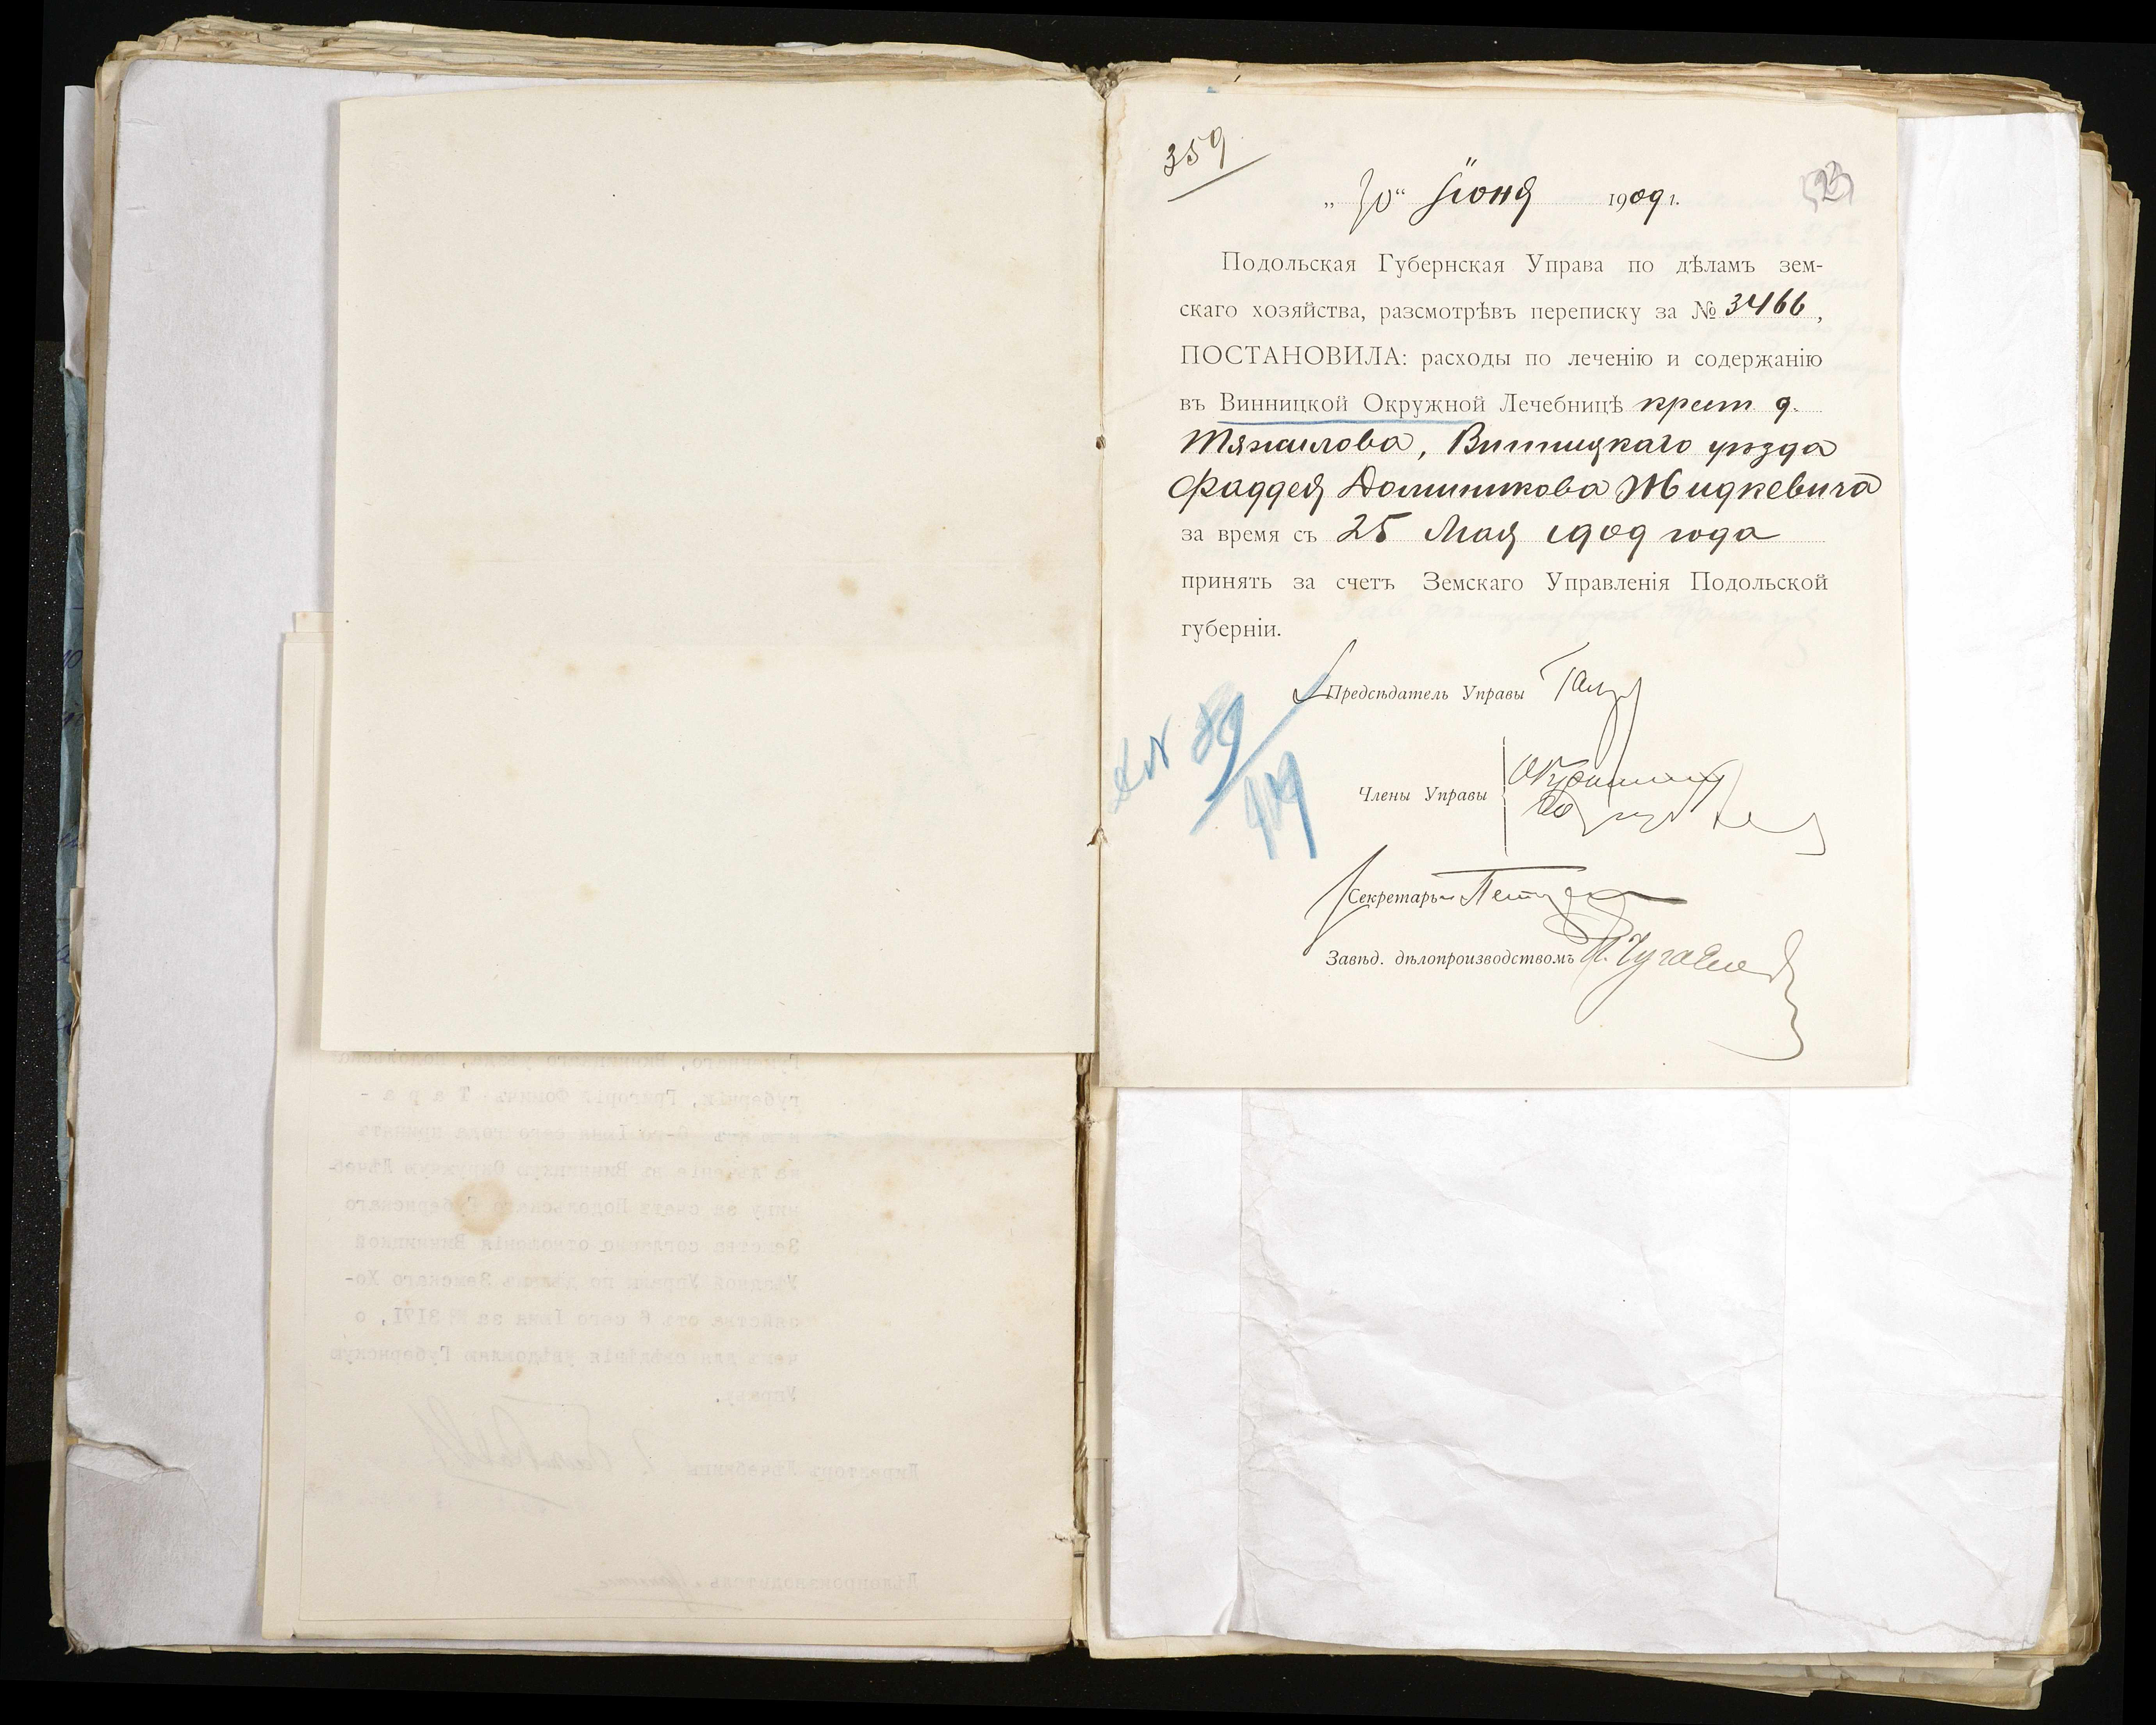 359
„30“ Іюня 1909 г.
Подольская Губернская Управа по дѣламъ зем-
скаго хозяйства, разсмотрѣвъ переписку за № 3466,
ПОСТАНОВИЛА: расходы по леченію и содержанію
въ Винницкой Окружной Лечебницѣ крест. д.
Тяжилова, Винницкаго уѣзда
Фаддея Доминикова Жидкевича
за время съ 25 Мая 1909 года
принять за счетъ Земскаго Управленія Подольской
губерніи.
Предсѣдатель Управы
Члены Управы
Секретарь
Завѣд. дѣлопроизводствомъ
губерніи, Григорія Фомичъ Т а р а -
9-го Іюня сего года принятъ
на лѣченіе въ Винницкую Окружную Лѣчеб-
ницу за счетъ Подольскаго Губернскаго
Земства согласно отношенія Винницкой
Уѣздной Управы по дѣламъ Земскаго Хо-
зяйства отъ 6 сего Іюня за № 3171, о
чемъ для свѣдѣнія увѣдомляю Губернскую
Управу.
Директоръ Лѣчебницы
Дѣлопроизводитель